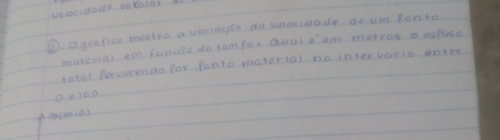 velocidade escalar
O gráfico mostra a variação da velocidade de um ponto
material em função do tempo. Qual é em metros o espaço
total percorrendo por ponto material no intervalo entre
0 e 100